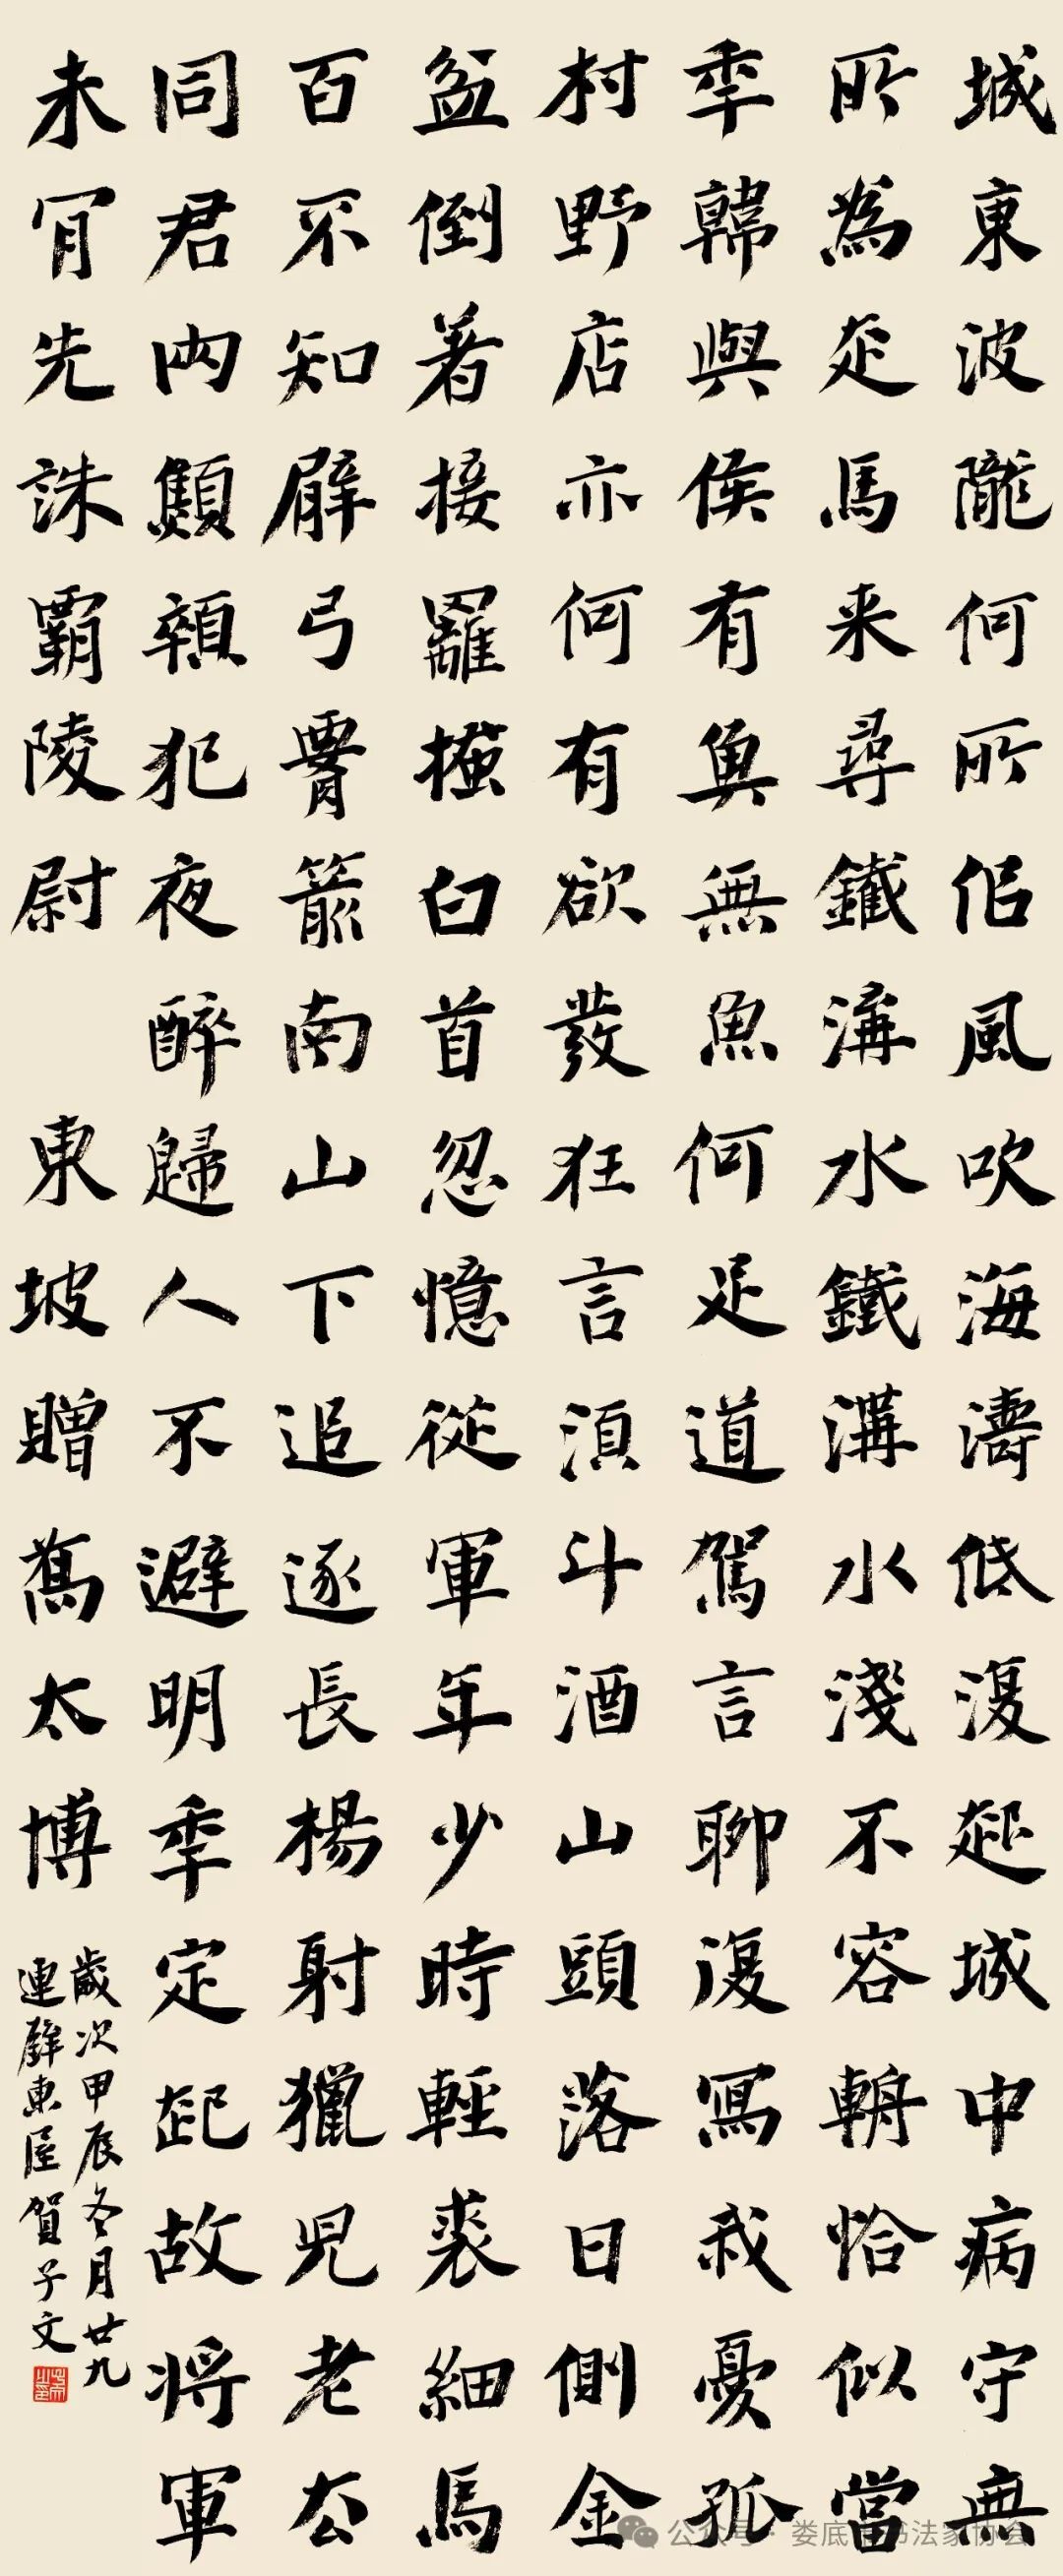 城東波隴何所佀風吹海濤低復起城中病守無
所為走馬来尋鐵溝水鐵溝水淺不容輈恰似當
秊韓與侯有魚無魚何足道駕言聊復寫我憂孤
村野店亦何有欲發狂言須斗酒山頭落日側金
盆倒著接䍦搔白首忽憶從軍年少時輕裘細馬
百不知臂弓腰箭南山下追逐長楊射獵兒老去
同君兩顦顇犯夜醉歸人不避明秊定起故將軍
未肯先誅霸陵尉 東坡贈喬太博
歲次甲辰冬月廿九
連 東屋賀子文
公众号·娄底市书法家协会